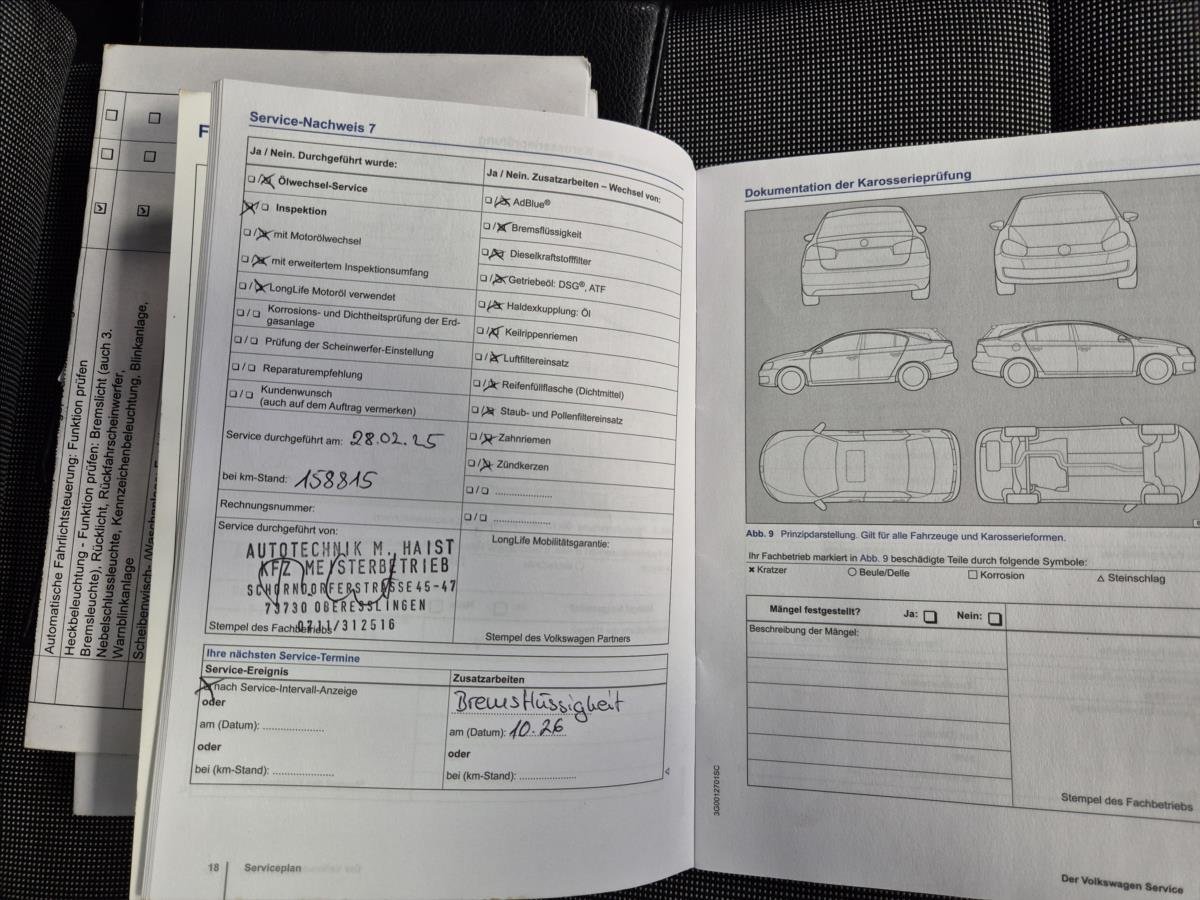 Automatische Fahrlichtsteuerung: Funktion prüfen
Heckbeleuchtung - Funktion prüfen: Bremslicht (auch 3.
Bremsleuchte), Rücklicht, Rückfahrscheinwerfer,
Nebelschlussleuchte, Kennzeichenbeleuchtung, Blinkanlage,
Warnblinkanlage
F
Service-Nachweis 7
Ja / Nein. Durchgeführt wurde:
Ölwechsel-Service
Inspektion
mit Motorölwechsel
mit erweitertem Inspektionsumfang
LongLife Motoröl verwendet
Korrosions- und Dichtheitsprüfung der Erd-
gasanlage
Prüfung der Scheinwerfer-Einstellung
Reparaturempfehlung
Kundenwunsch
(auch auf dem Auftrag vermerken)
Service durchgeführt am: 28.02.25
bei km-Stand: 158815
Rechnungsnummer:
Service durchgeführt von:
AUTOTECHNIK M. HAIST
KFZ MEISTERBETRIEB
SCHORNDORFERSTRASSE 45-47
73730 OBERESSLINGEN
0711/312516
Stempel des Fachbetriebs
Ja / Nein. Zusatzarbeiten – Wechsel von:
AdBlue®
Bremsflüssigkeit
Dieselkraftstofffilter
Getriebeöl: DSG®, ATF
Haldexkupplung: Öl
Keilrippenriemen
Luftfiltereinsatz
Reifenfüllflasche (Dichtmittel)
Staub- und Pollenfiltereinsatz
Zahnriemen
Zündkerzen
LongLife Mobilitätsgarantie:
Stempel des Volkswagen Partners
Ihre nächsten Service-Termine
Service-Ereignis
nach Service-Intervall-Anzeige
oder
am (Datum): ....................
oder
bei (km-Stand): ....................
Zusatzarbeiten
Bremsflüssigkeit
am (Datum): 10.26
oder
bei (km-Stand): ....................
18 Serviceplan
Dokumentation der Karosserieprüfung
Abb. 9 Prinzipdarstellung. Gilt für alle Fahrzeuge und Karosserieformen.
Ihr Fachbetrieb markiert in Abb. 9 beschädigte Teile durch folgende Symbole:
× Kratzer ○ Beule/Delle □ Korrosion △ Steinschlag
Mängel festgestellt? Ja: Nein:
Beschreibung der Mängel:
Stempel des Fachbetriebs
3G0012701SC
Der Volkswagen Service